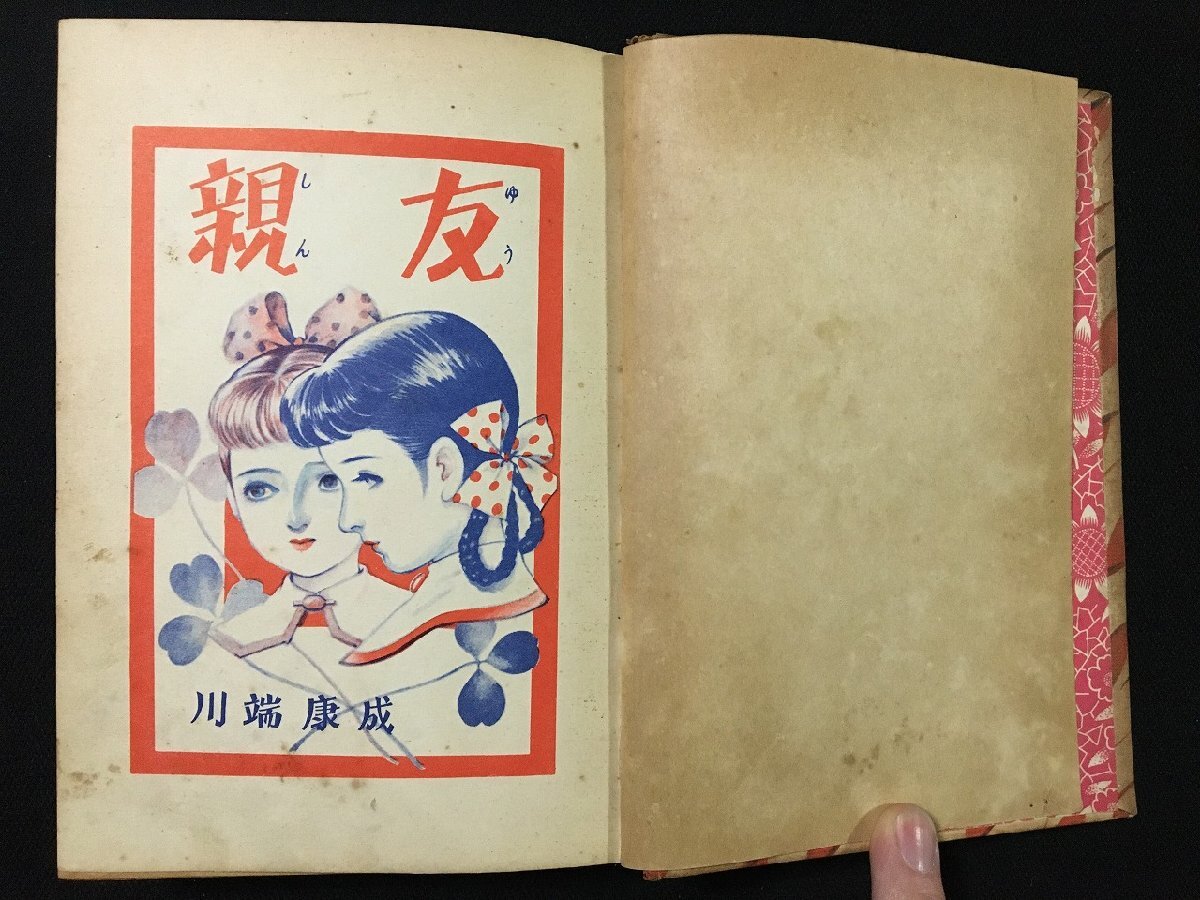 親友
しんゆう
川端康成